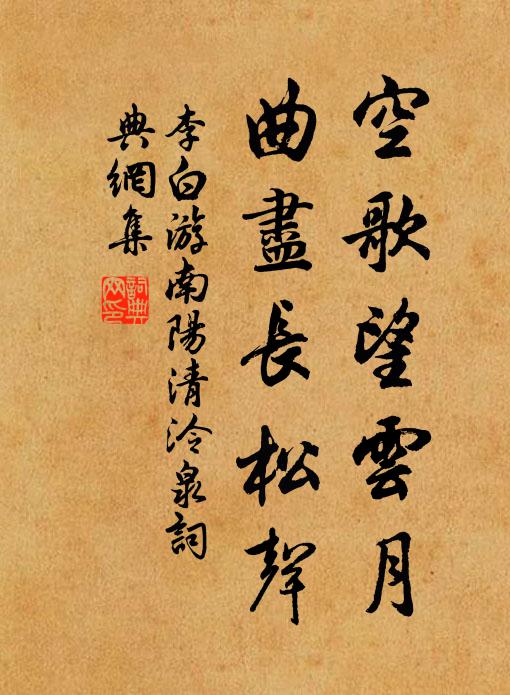 空歌望雲月
曲盡長松聲
李白游南陽清泠泉詞
典網集
詞典
网印